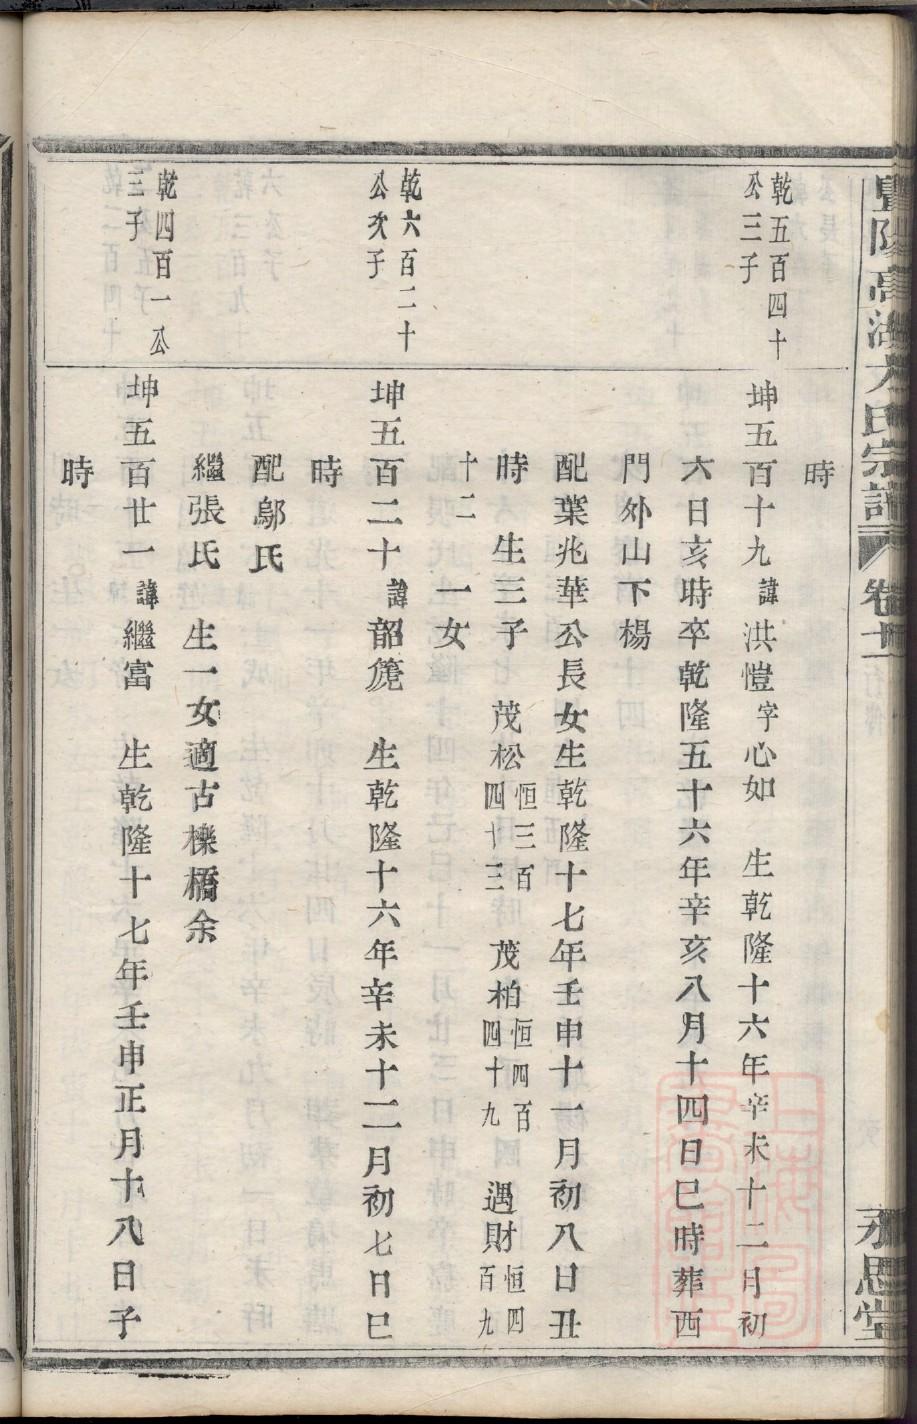 暨陽高湖方氏宗譜 卷十二 行傳 永思堂
時
乾五百四十
公三子
坤五百十九 諱洪愷字心如 生乾隆十六年辛未十二月初
六日亥時卒乾隆五十六年辛亥八月十四日巳時葬西
門外山下楊
配葉兆華公長女生乾隆十七年壬申十一月初八日丑
時 生三子 茂松恒三百四十三 茂柏恒四百四十九 遇財恒四百九
十二 一女
乾六百二十
公次子
坤五百二十 諱韶箎 生乾隆十六年辛未十二月初七日巳
時
配鄔氏
繼張氏 生一女適古櫟橋余
乾四百一公
三子
坤五百廿一 諱繼富 生乾隆十七年壬申正月十八日子
時